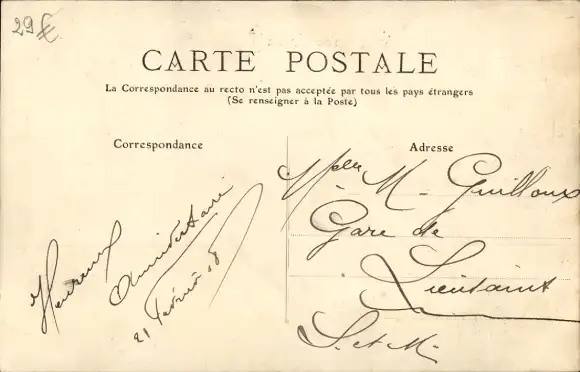 29 €
CARTE POSTALE
La Correspondance au recto n'est pas acceptée par tous les pays étrangers
(Se renseigner à la Poste)
Correspondance
Adresse
Heureux
Anniversaire
21 Février 08
Mlle M. Guilloux
Gare de
Lieusaint
S. et M.